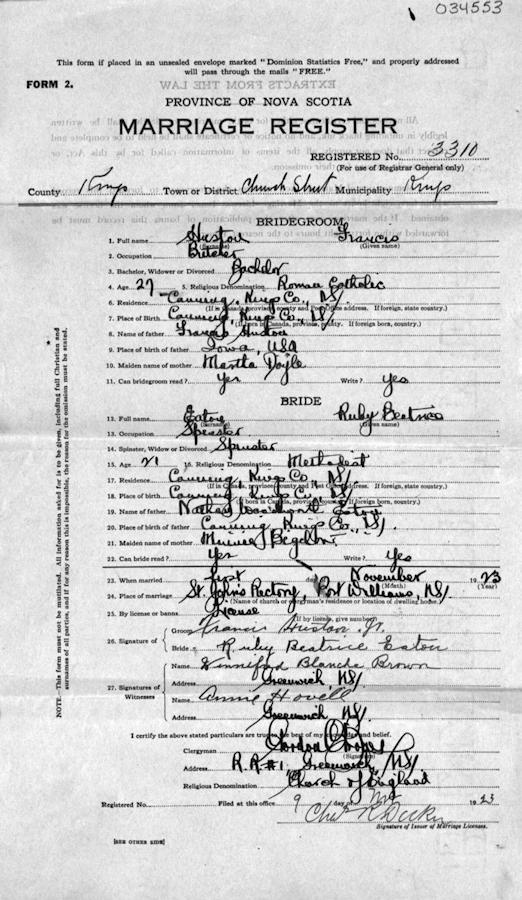 034553
This form if placed in an unsealed envelope marked "Dominion Statistics Free," and properly addressed
will pass through the mails "FREE."
FORM 2.
PROVINCE OF NOVA SCOTIA
MARRIAGE REGISTER
REGISTERED No. 3310
(For use of Registrar General only)
County Kings Town or District Church Street Municipality Kings
BRIDEGROOM
1. Full name Huston Francis
(Surname) (Given name)
2. Occupation Butcher
3. Bachelor, Widower or Divorced Bachelor
4. Age 27 5. Religious Denomination Roman Catholic
6. Residence Canning, Kings Co., NS/.
7. Place of Birth Canning, Kings Co., NS/.
8. Name of father Francis Huston
9. Place of birth of father Iowa, USA
10. Maiden name of mother Martha Doyle
11. Can bridegroom read? Yes Write? Yes
BRIDE
12. Full name Eaton Ruby Beatrice
(Surname) (Given name)
13. Occupation
14. Spinster, Widow or Divorced Spinster
15. Age 21 16. Religious Denomination Methodist
17. Residence Canning, Kings Co., NS/.
18. Place of birth Canning, Kings Co., NS/.
19. Name of father Nathan Woodworth Eaton
20. Place of birth of father Canning Kings Co., NS/.
21. Maiden name of mother Minnie Bigelow
22. Can bride read? Yes Write? Yes
23. When married first day November 1923
(Month) (Year)
24. Place of marriage St. John's Rectory, Port Williams, NS/.
(Name of church or clergyman's residence or location of dwelling house.)
25. By license or banns License
(If by license, give number)
26. Signature of
Groom Francis Huston Jr.
Bride Ruby Beatrice Eaton
27. Signatures of Witnesses
Name Winnifred Blanche Brown
Address Greenwich, NS/.
Name Annie Hovell
Address Greenwich NS/.
I certify the above stated particulars are true to the best of my knowledge and belief.
Clergyman Gordon
(Signature)
Address R.R#1, Greenwich, NS/.
Religious Denomination Church of England
Registered No. Filed at this office 9 day of Nov 1923
Chas R Decker
Signature of Issuer of Marriage Licenses.
[SEE OTHER SIDE]
NOTE—This form must not be mutilated. All information asked for is to be given, including full Christian and
surnames of all parties, and if for any reason this is impossible, the reason for the omission must be stated.